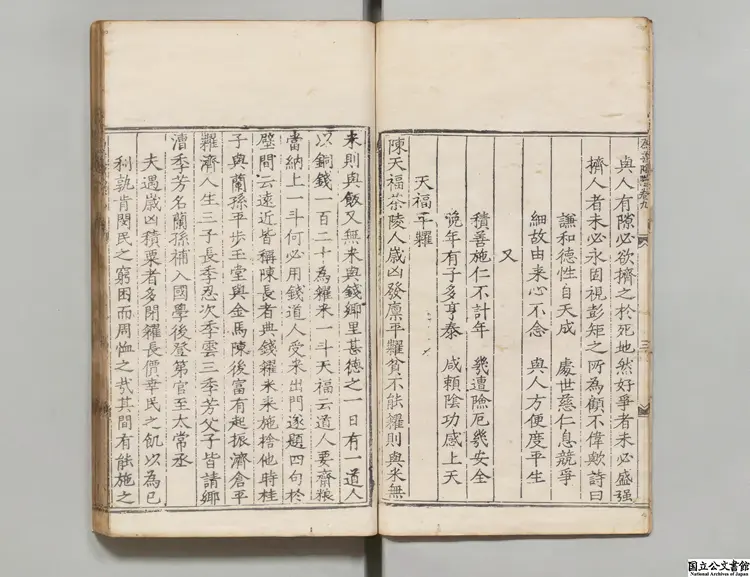 與人有隙必欲擠之於死地然好爭者未必盛强
擠人者未必永固視彭矩之所為顧不偉歟詩曰
謙和德性自天成 處世慈仁息競爭
細故由来心不念 與人方便度平生
又
積善施仁不計年 幾遭險厄幾安全
晚年有子多亨泰 咸賴陰功感上天
天福平糶
陳天福茶陵人歲凶發廪平糶貧不能糴則與米無
米則與飯又無米與錢鄉里甚德之一日有一道人
以銅錢一百二十為糴米一斗天福云道人要齋粮
當納上一斗何必用錢道人受米出門遂題四句於
壁間云遠近皆稱陳長者典錢糴米来施捨他時桂
子與蘭孫平歩玉堂與金馬陳後富有起振濟倉平
糶濟人生三子長季忍次季雲三季芳父子皆請鄉
漕季芳名蘭孫補入國學後登第官至太常丞
夫遇歲凶積粟者多閉糴長價幸民之飢以為已
利孰肯閔民之窮困而周恤之哉其間有能施之
卷九
三
国立公文書館
National Archives of Japan